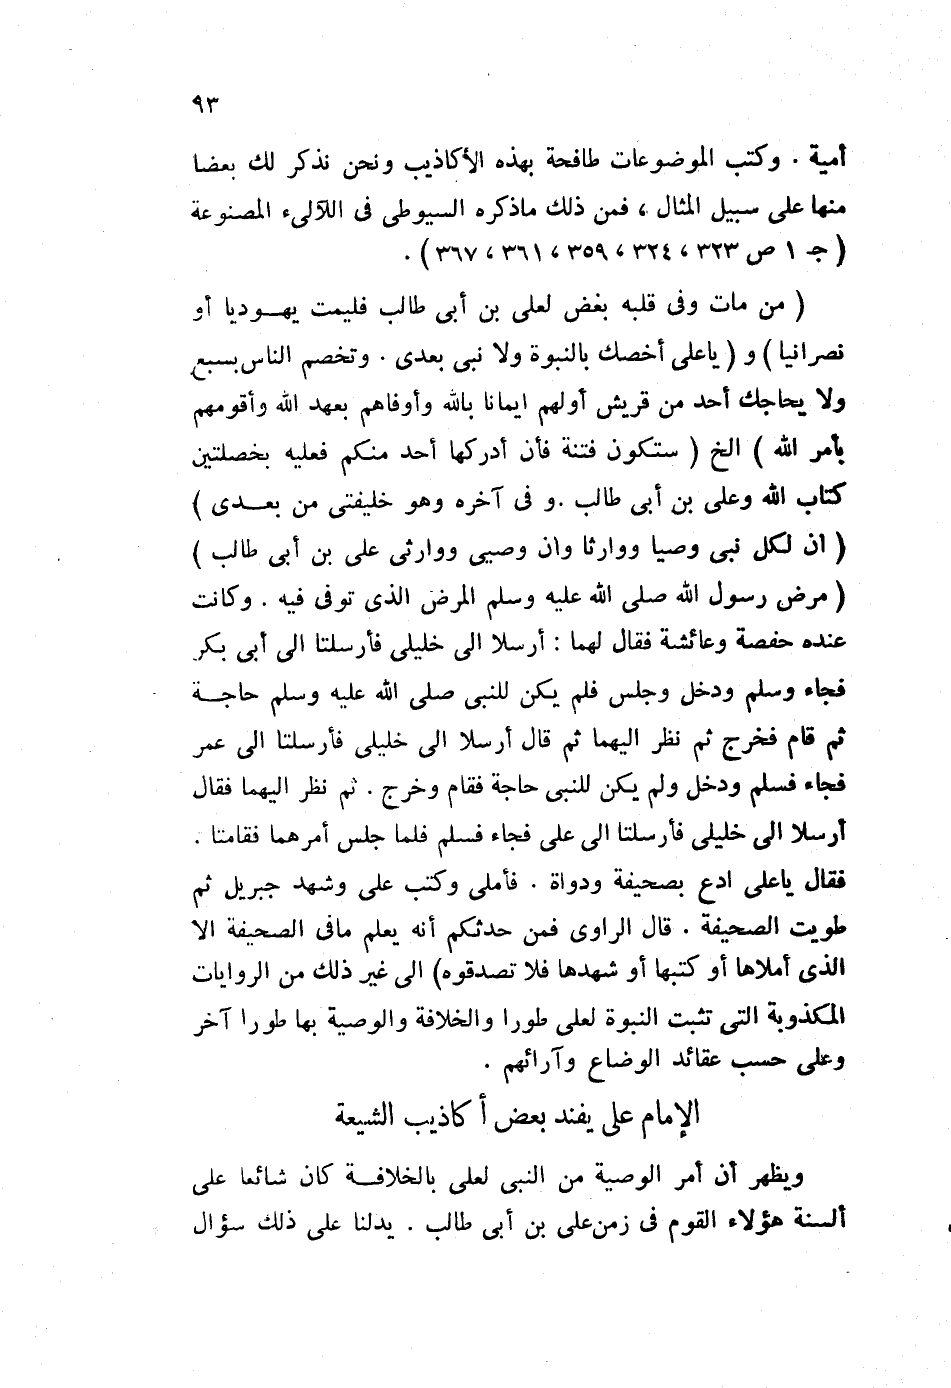 ٩٣
أمية . وكتب الموضوعات طافحة بهذه الأكاذيب ونحن نذكر لك بعضا
منها على سبيل المثال ، فمن ذلك ماذكره السيوطى فى اللآلىء المصنوعة
( جـ ١ ص ٣٢٣ ، ٣٢٤ ، ٣٥٩ ، ٣٦١ ، ٣٦٧ ) .
( من مات وفى قلبه بغض لعلى بن أبى طالب فليمت يهـوديا أو
نصرانيا ) و ( ياعلى أخصك بالنبوة ولا نبى بعدى . وتخصم الناس بسبع
ولا يحاجك أحد من قريش أولهم ايمانا بالله وأوفاهم بعهد الله وأقومهم
بأمر الله ) الخ ( ستكون فتنة فأن أدركها أحد منكم فعليه بخصلتين
كتاب الله وعلى بن أبى طالب .و فى آخره وهو خليفتى من بعـدى )
( ان لكل نبى وصيا ووارثا وان وصيى ووارثى على بن أبى طالب )
( مرض رسول الله صلى الله عليه وسلم المرض الذى توفى فيه . وكانت
عنده حفصة وعائشة فقال لهما : أرسلا الى خليلى فأرسلتا الى أبى بكر
فجاء وسلم ودخل وجلس فلم يكن للنبى صلى الله عليه وسلم حاجـة
ثم قام فخرج ثم نظر اليهما ثم قال أرسلا الى خليلى فأرسلتا الى عمر
فجاء فسلم ودخل ولم يكن للنبى حاجة فقام وخرج . ثم نظر اليهما فقال
أرسلا الى خليلى فأرسلتا الى على فجاء فسلم فلما جلس أمرهما فقامتا .
فقال ياعلى ادع بصحيفة ودواة . فأملى وكتب على وشهد جبريل ثم
طويت الصحيفة . قال الراوى فمن حدثكم أنه يعلم مافى الصحيفة الا
الذى أملاها أو كتبها أو شهدها فلا تصدقوه) الى غير ذلك من الروايات
المكذوبة التى تثبت النبوة لعلى طورا والخلافة والوصية بها طورا آخر
وعلى حسب عقائد الوضاع وآرائهم .
الإمام على يفند بعض أكاذيب الشيعة
ويظهر أن أمر الوصية من النبى لعلى بالخلافـة كان شائعا على
ألسنة هؤلاء القوم فى زمن على بن أبى طالب . يدلنا على ذلك سؤال